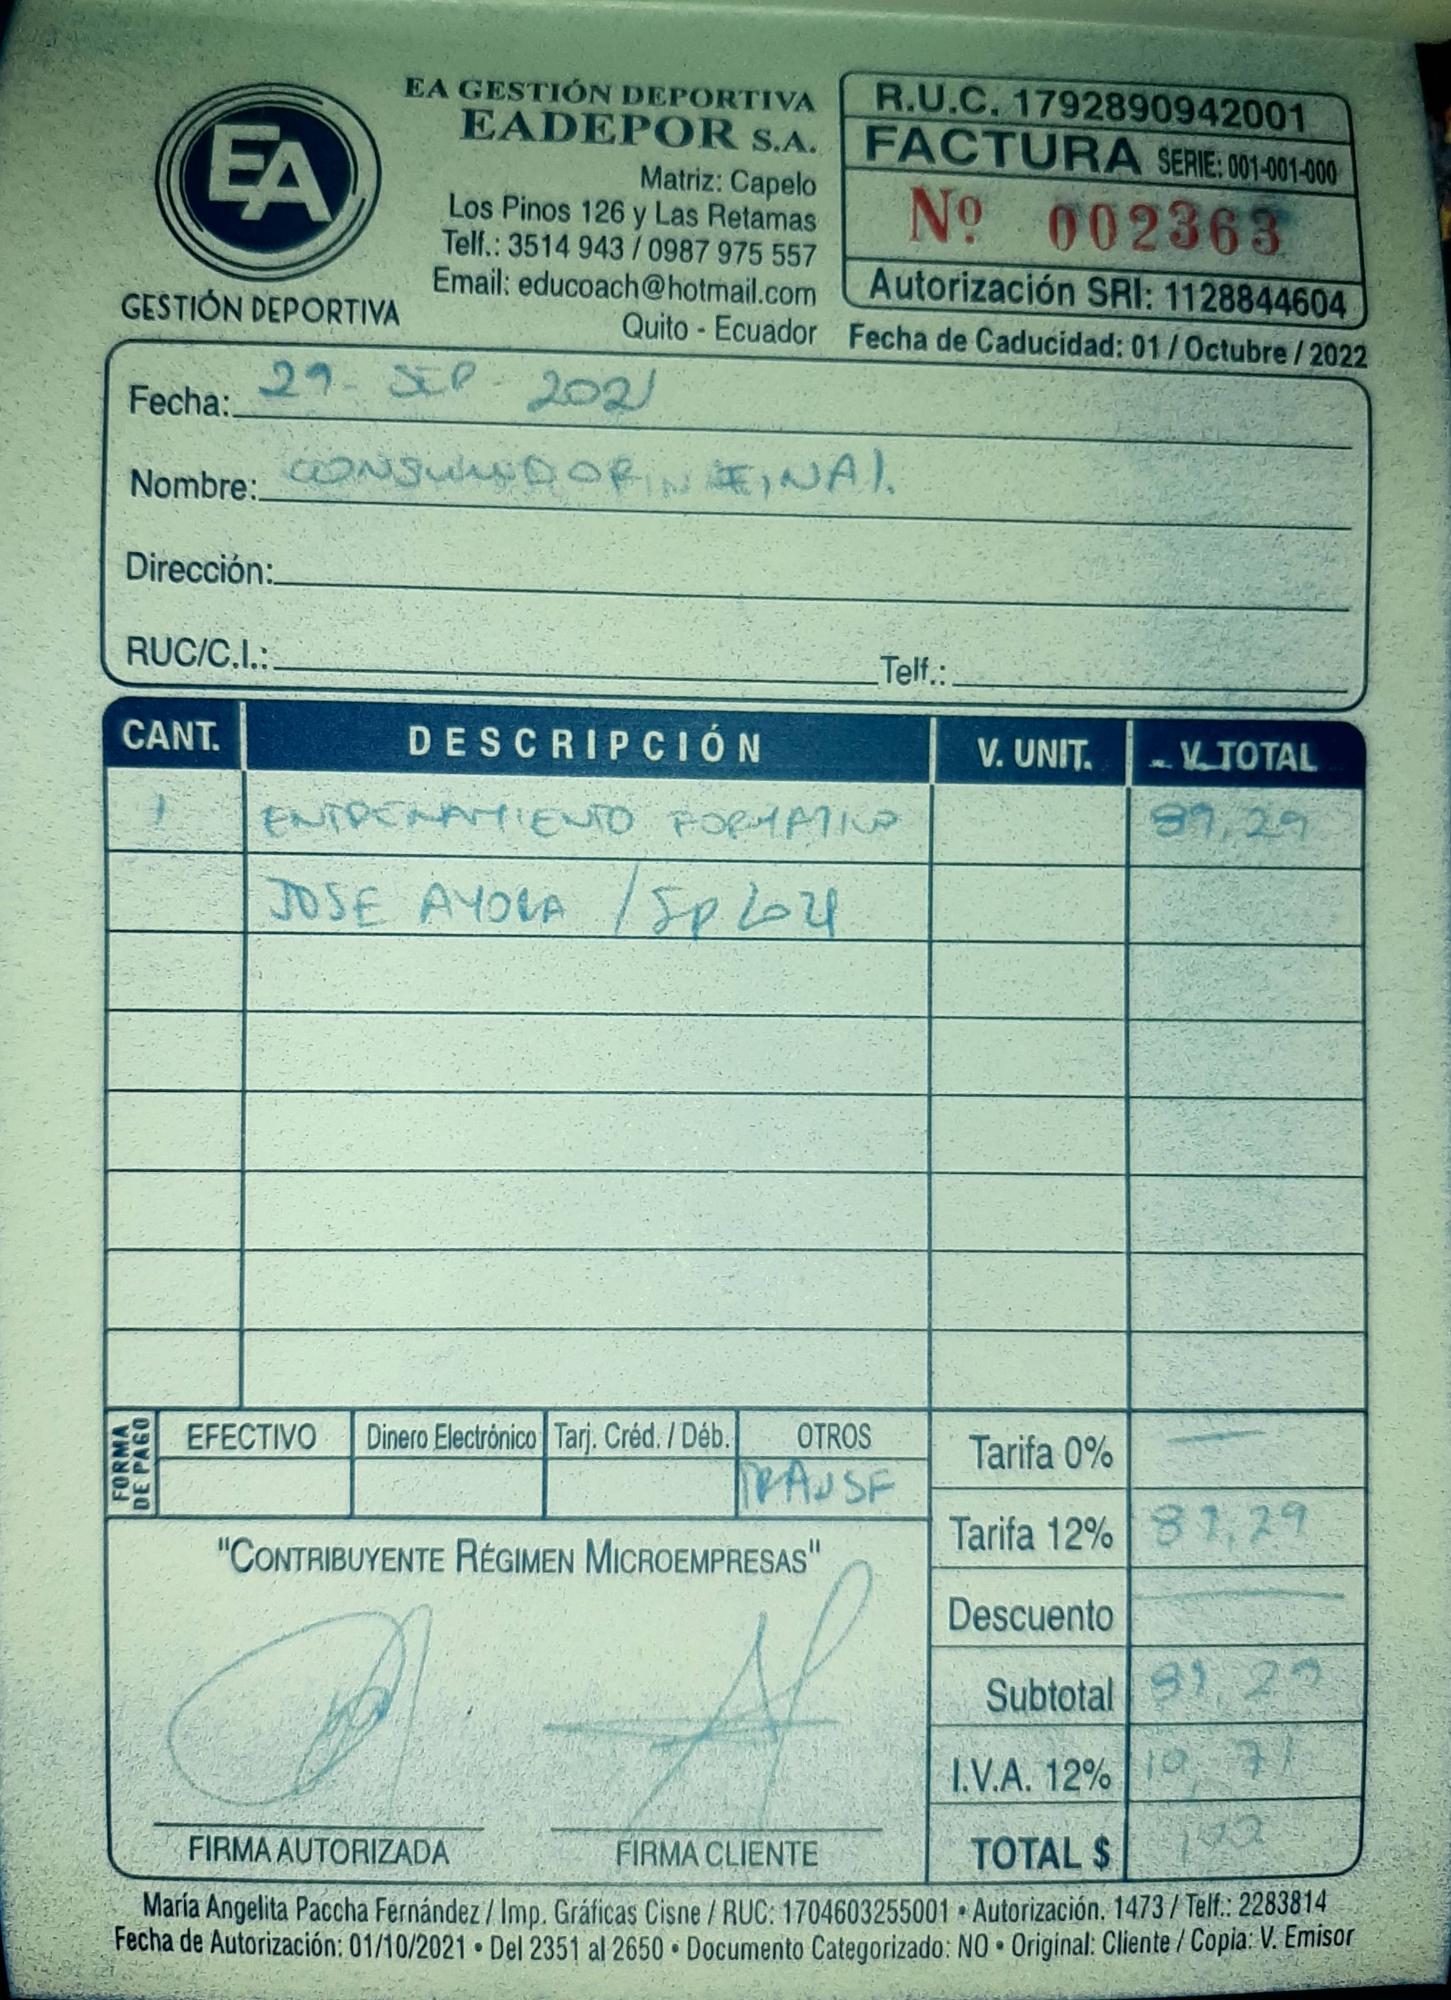 EA
GESTIÓN DEPORTIVA
EA GESTIÓN DEPORTIVA
EADEPOR S.A.
Matriz: Capelo
Los Pinos 126 y Las Retamas
Telf.: 3514 943 / 0987 975 557
Email: educoach@hotmail.com
Quito - Ecuador
R.U.C. 1792890942001
FACTURA SERIE: 001-001-000
Nº 002363
Autorización SRI: 1128844604
Fecha de Caducidad: 01 / Octubre / 2022
Fecha: 29 - SEP - 2021
Nombre: CONSUMIDOR FINAL
Dirección:
RUC/C.I.: Telf.:
CANT. DESCRIPCIÓN V. UNIT. V. TOTAL
1 ENTRENAMIENTO FORMATIVO 89,29
JOSE AYORA / Sp 2021
FORMA DE PAGO
EFECTIVO Dinero Electrónico Tarj. Créd. / Déb. OTROS
TRANSF
Tarifa 0% —
Tarifa 12% 89,29
Descuento —
Subtotal 89,29
I.V.A. 12% 10,71
TOTAL $ 100
"CONTRIBUYENTE RÉGIMEN MICROEMPRESAS"
FIRMA AUTORIZADA FIRMA CLIENTE
María Angelita Paccha Fernández / Imp. Gráficas Cisne / RUC: 1704603255001 • Autorización. 1473 / Telf.: 2283814
Fecha de Autorización: 01/10/2021 • Del 2351 al 2650 • Documento Categorizado: NO • Original: Cliente / Copia: V. Emisor